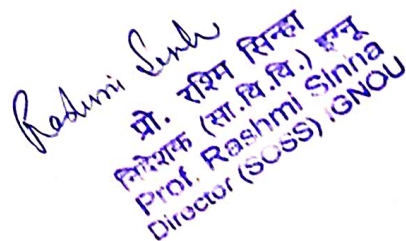 Rashmi Sinh
प्रो. रश्मि सिन्हा
निदेशक (सा.वि.वि.) इग्नू
Prof. Rashmi Sinha
Director (SOSS) IGNOU